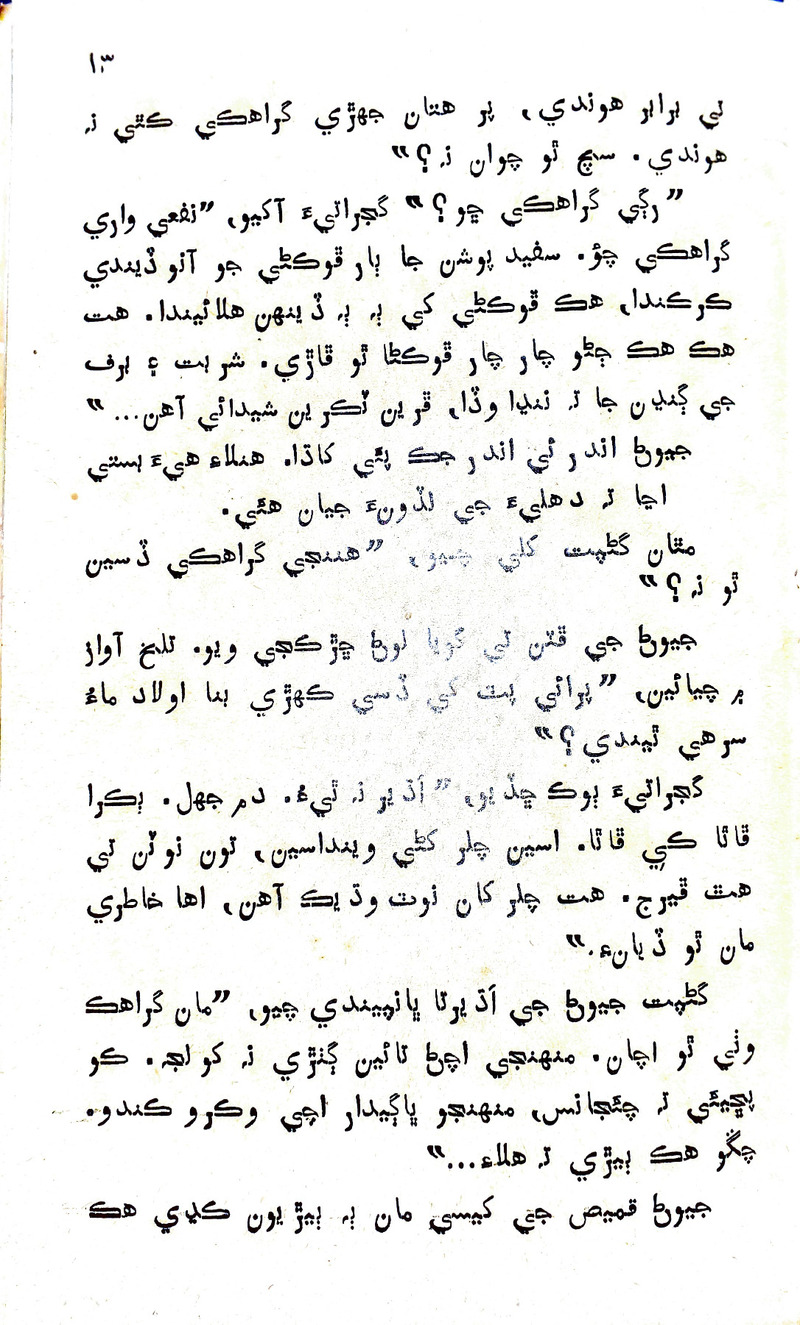 ١٣
تي برابر هوندي، پر هتان جهڙي گراهڪي ڪٿي نہ
هوندي. سچ ٿو چوان نہ؟“
”رڳي گراهڪي ڇو؟“ گجراتيءَ آکيو، ”نفعي واري
گراهڪي چؤ. سفيد پوشن جا ٻار ڦوڪڻي جو آنو ڏيندي
ڪرڪندا، هڪ ڦوڪڻي کي ٻہ ٻہ ڏينهن هلائيندا. هت
هڪ هڪ ڄڻو چار چار ڦوڪڻا ٿو ڦاڙي. شربت ۽ برف
جي ڳنڍن جا تہ ننڍا وڏا، ڦرين ٽڪرين شيدائي آهن...“
جيوڻ اندر ئي اندر جڪ پئي کاڌا. هنلاءِ هيءَ بستي
اڃا تہ دهليءَ جي لڏونءَ جيان هئي.
مٿان گڻپت کلي چيو، ”هنجي گراهڪي ڏسين
ٿو نہ؟“
جيوڻ جي ڦٽن تي گويا لوڻ ڇڙڪجي ويو. تلخ آواز
۾ چيائين، ”پرائي پٽ کي ڏسي ڪهڙي بنا اولاد ماءُ
سرهي ٿيندي؟“
گجراتيءَ ٻوڪ ڇڏيو، ”اَڌير نہ ٿيءُ. دم جهل. ٻڪرا
ڦاٿا ڪي ڦاٿا. اسين چلر کڻي وينداسين، تون نوٽن تي
هٿ ڦيرج. هت چلر کان نوٽ وڌيڪ آهن، اها خاطري
مان ٿو ڏيانءِ.“
گڻپت جيوڻ جي اَڌيرتا ڀانپيندي چيو، ”مان گراهڪ
وٺي ٿو اچان. منهنجي اچڻ تائين ڳٺڙي نہ کولجہ. ڪو
پڇيئي تہ چئجانس، منهنجو ڀاڳيدار اچي وڪرو ڪندو.
چڱو هڪ ٻيڙي تہ هلاءِ...“
جيوڻ قميص جي کيسي مان ٻہ ٻيڙيون ڪڍي هڪ